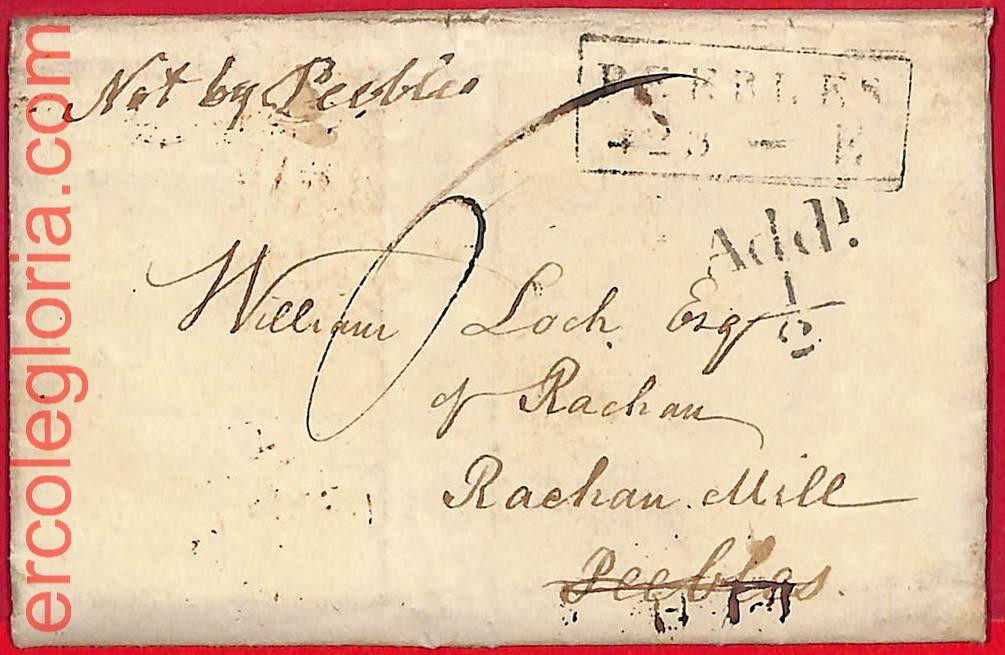 Not by Peebles
PEEBLES
423 — E
Addl.
1/2
William Loch Esqr
of Rachan
Rachan Mill
Peebles.
ercolegloria.com